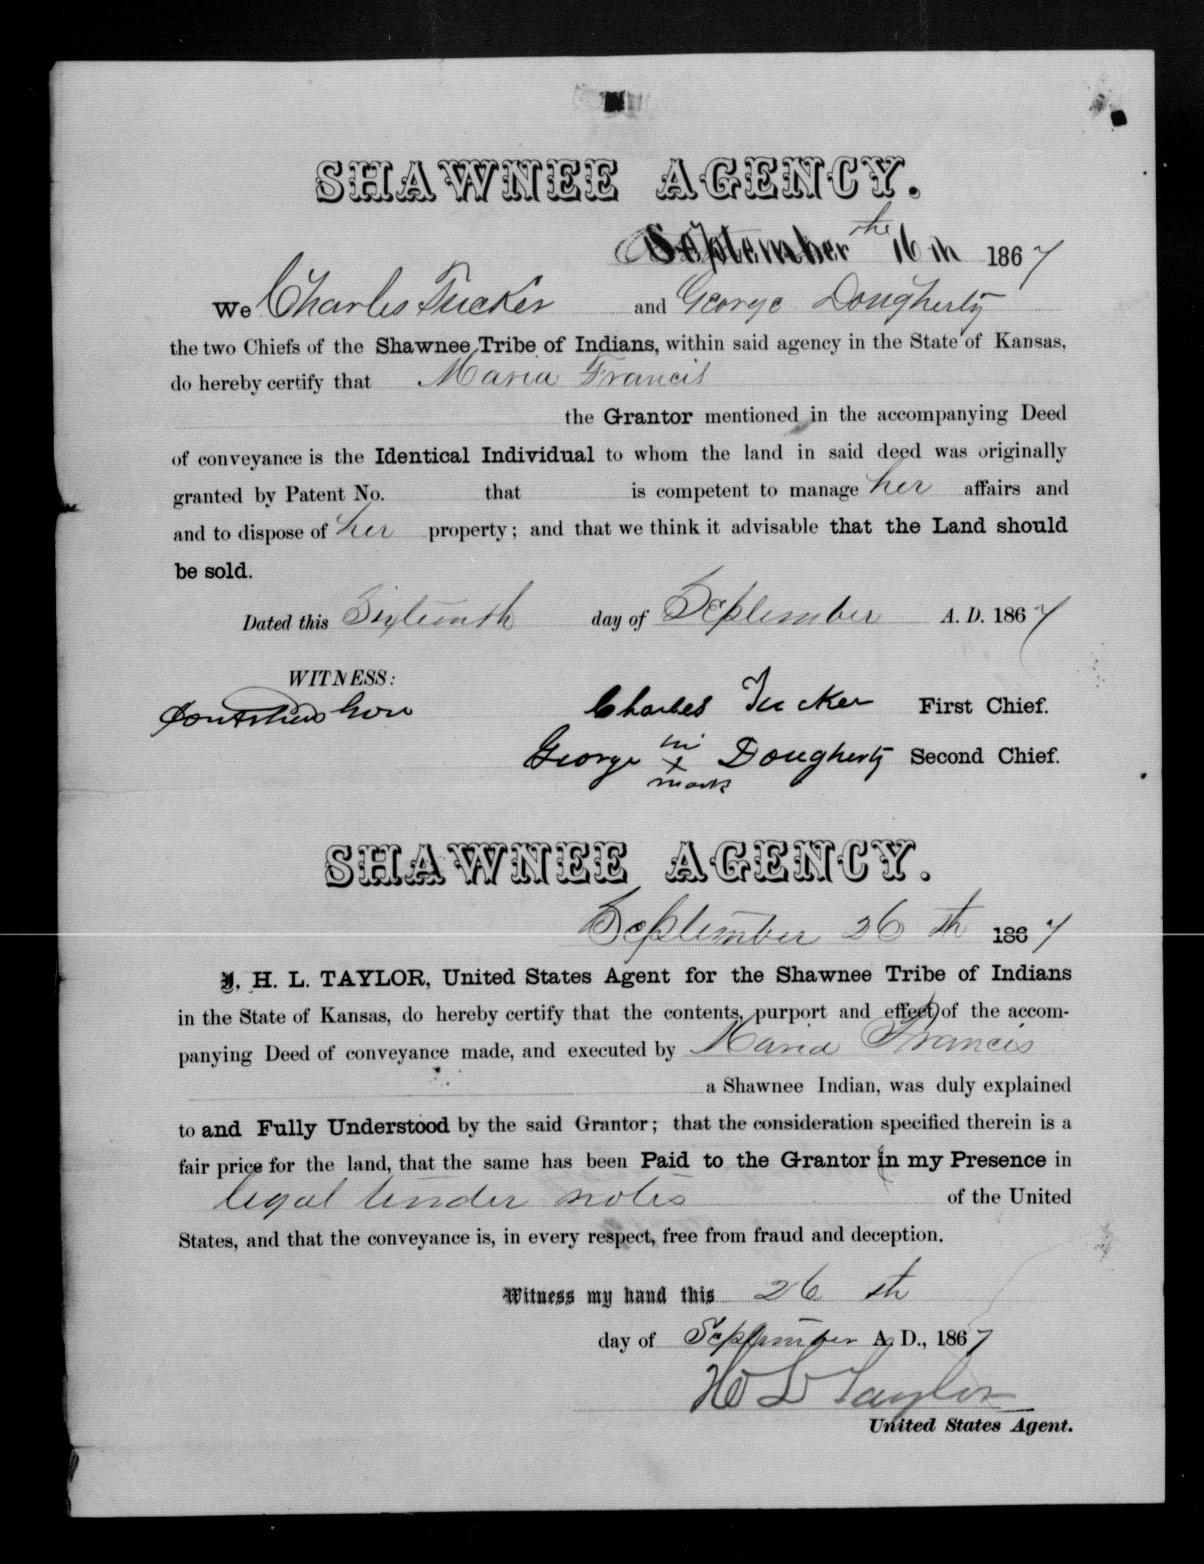 SHAWNEE AGENCY.
September the 16 th 1867
We Charles Tucker and George Dougherty
the two Chiefs of the Shawnee Tribe of Indians, within said agency in the State of Kansas,
do hereby certify that Maria Francis
the Grantor mentioned in the accompanying Deed
of conveyance is the Identical Individual to whom the land in said deed was originally
granted by Patent No. that is competent to manage her affairs and
and to dispose of her property; and that we think it advisable that the Land should
be sold.
Dated this Sixteenth day of September A. D. 1867
WITNESS:
Charles Tucker First Chief.
his
George x Dougherty Second Chief.
mark
SHAWNEE AGENCY.
September 26 th 1867
I, H. L. TAYLOR, United States Agent for the Shawnee Tribe of Indians
in the State of Kansas, do hereby certify that the contents, purport and effect, of the accom-
panying Deed of conveyance made, and executed by Maria Francis
a Shawnee Indian, was duly explained
to and Fully Understood by the said Grantor; that the consideration specified therein is a
fair price for the land, that the same has been Paid to the Grantor in my Presence in
legal tender notes of the United
States, and that the conveyance is, in every respect, free from fraud and deception.
Witness my hand this 26 th
day of September A. D., 1867
H L Taylor
United States Agent.